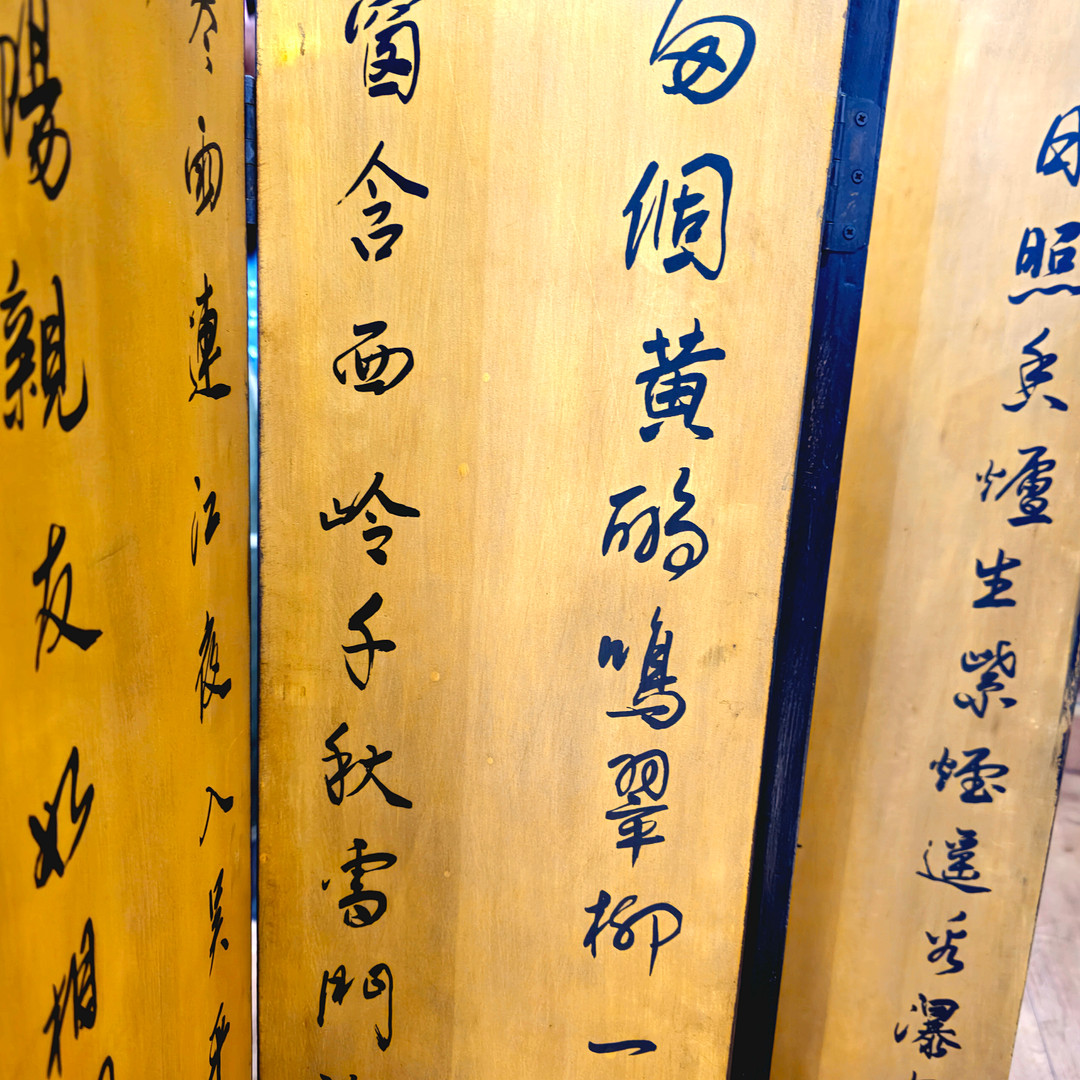 日照香爐生紫煙遙看瀑
兩個黄鸝鳴翠柳一
窗含西岭千秋雪門
寒雨連江夜入吳平
陽親友如相